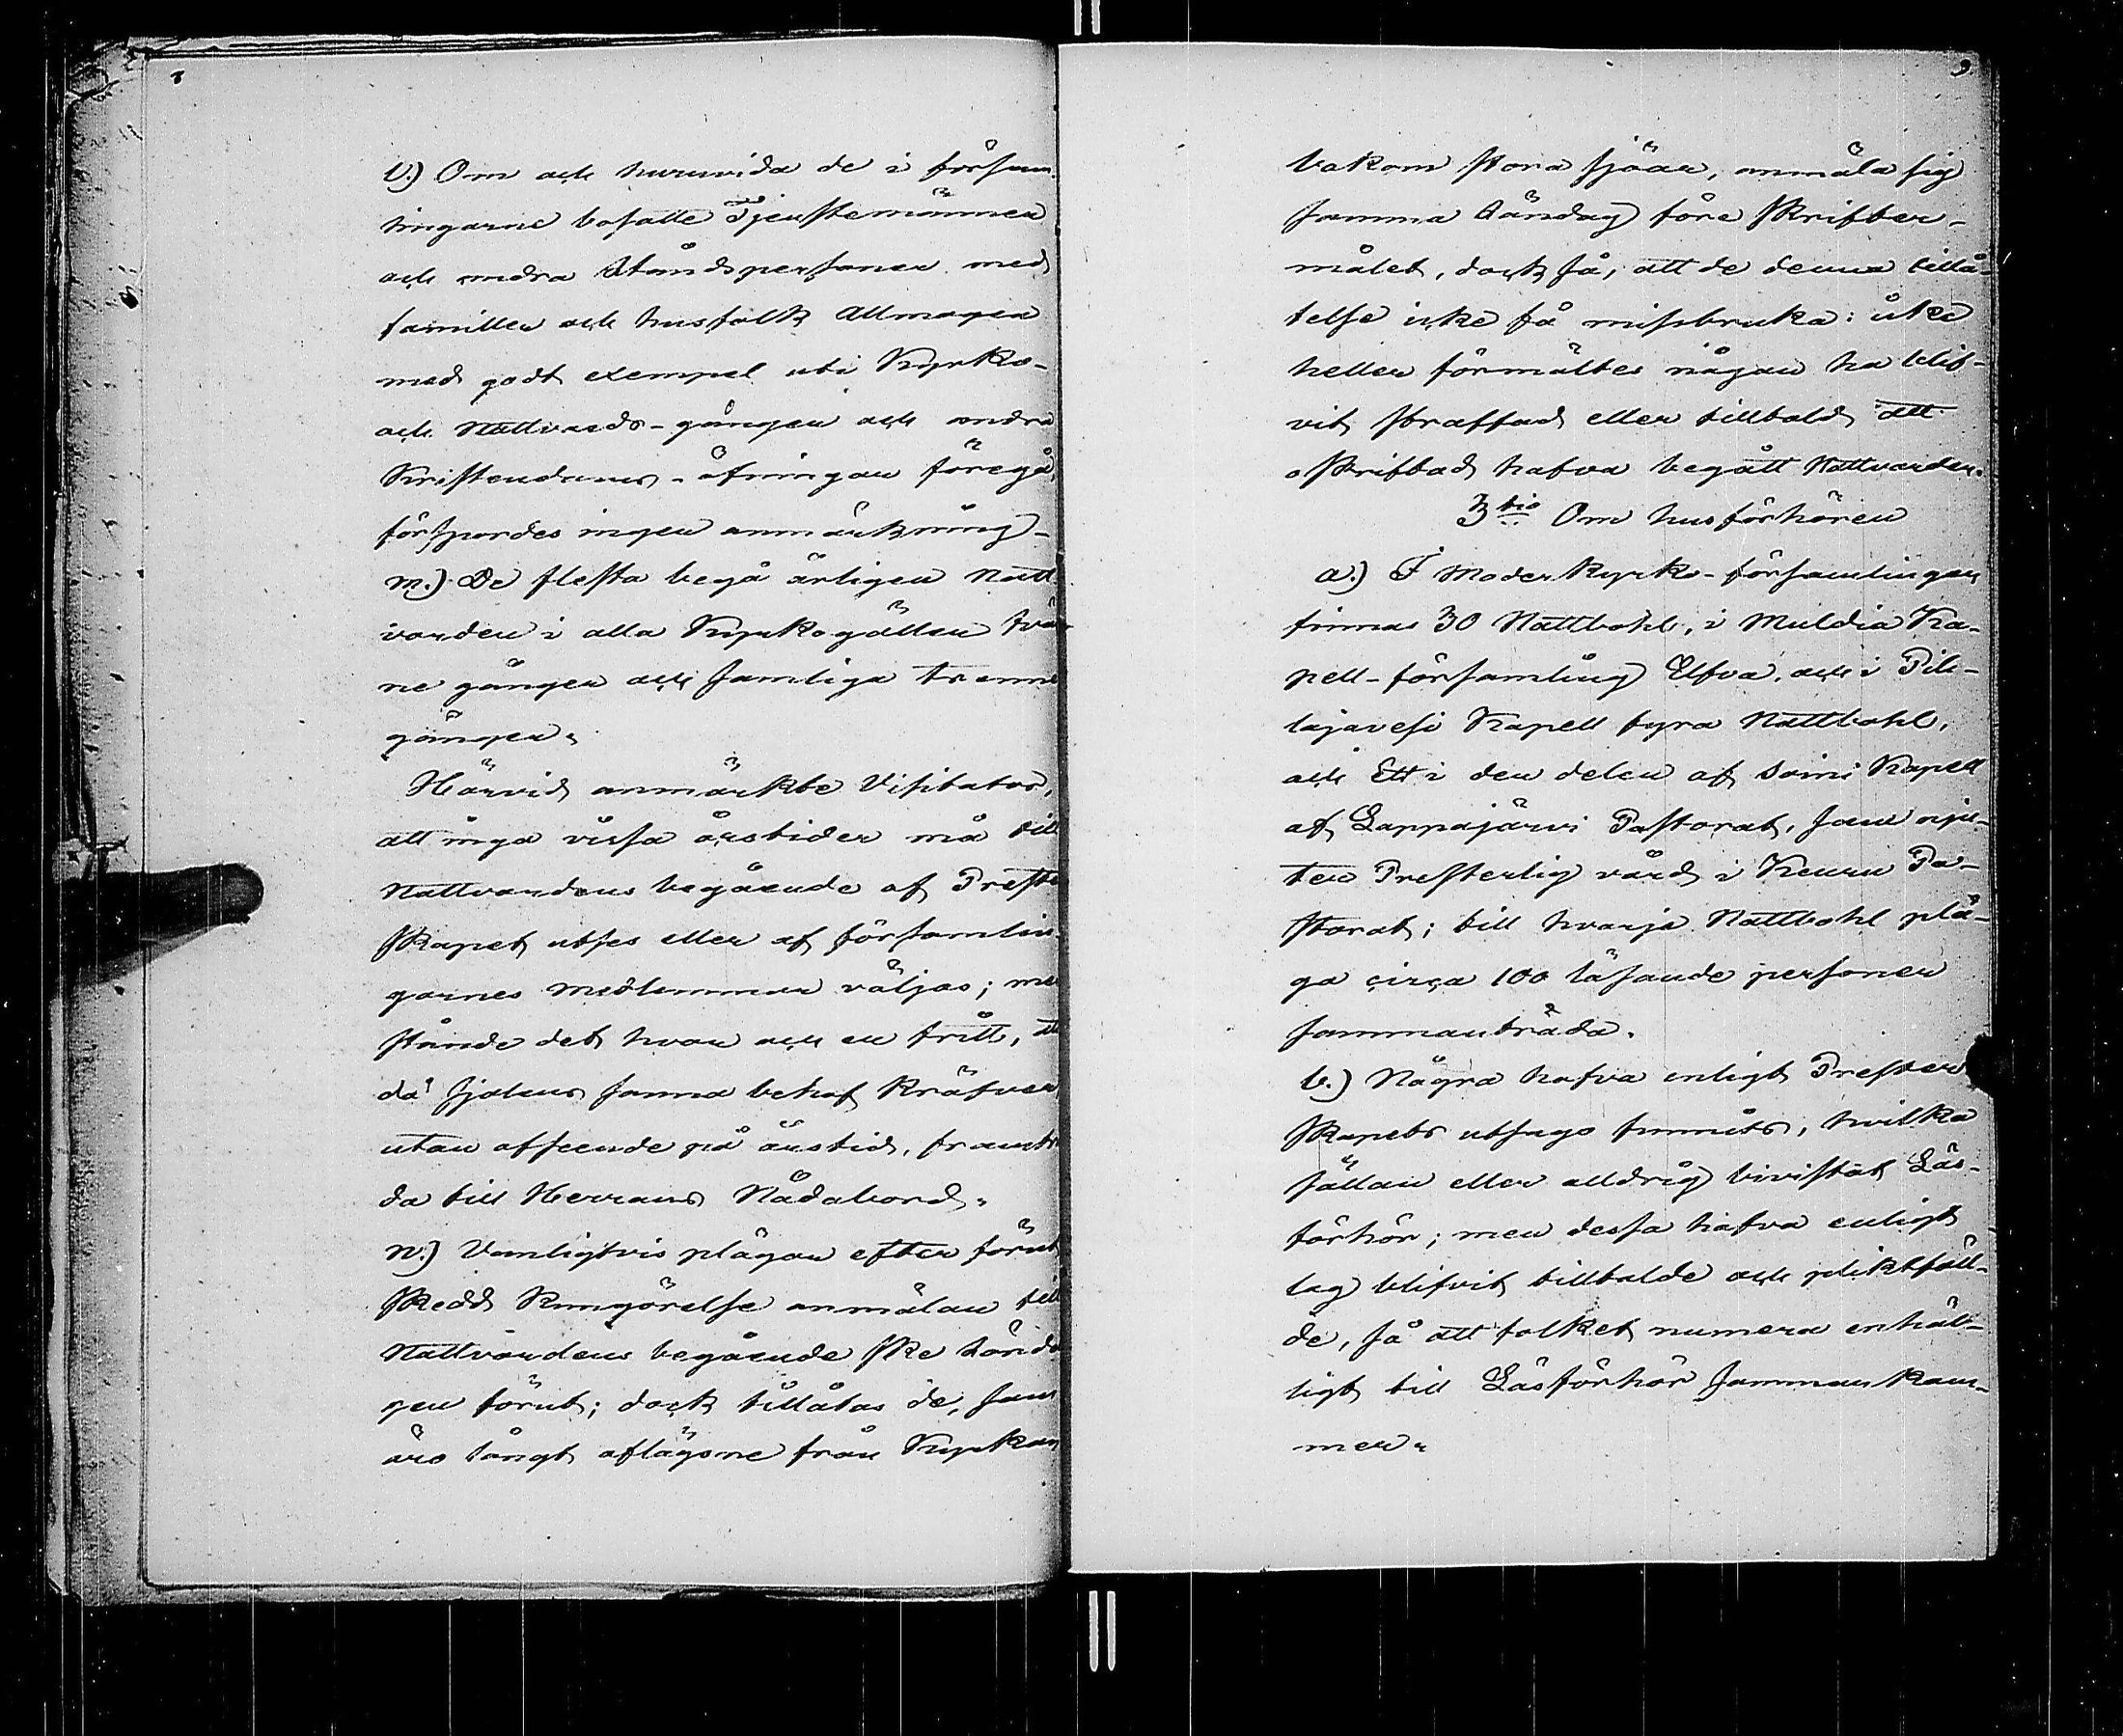 8
l.) Om och huruvida de i försam-
lingarne bosatte Tjenstemännen
och andra Ståndspersoner med
familler och husfolk Allmogen
med godt exempel uti Kyrko-
och Nattvards-gången och andra
Kristendoms-öfningar föregå,
förspordes ingen anmärkning-
m.) De flesta begå årligen Natt
varden i alla Kyrkogällen tvän
ne gånger och somliga trenne
gånger.
Härvid anmärkte Visitator,
att inga vissa årstider må till
Nattvardens begående af Preste
skapet utses eller af församlin-
garnes medlemmar väljas; men
stånde det hvar och en fritt, att
då själens sanna behof kräfver
utan afseende på årstid, framträ
da till Herrans Nådabord.
n.) Vanligtvis plägar efter förut
skedd kungörelse anmälan till
Nattvardens begående ske Lörda
gen förut; dock tillåtas de, som
äro långt aflägsne från Kyrkan
9
bakom stora sjöar, anmäla sig
samma Söndag före skrifter-
målet, dock så, att de denna tillå-
telse icke få missbruka: icke
heller förmältes någon ha blif-
vit straffad eller tilltald att
oskriftad hafva begått Nattvarden.
3tio Om husförhören
a.) I Moderkyrko-församlingen
finnas 30 Nattbohl, i Muldia Ka-
pell-församling Elfva, och i Pih-
lajavesi Kapell fyra Nattbohl,
och Ett i den delen af Soini Kapell
af Lappajärvi Pastorat, som nju-
ter Presterlig vård i Keuru Pa-
storat; till hvarje Nattbohl plä-
ga circa 100 läsande personer
sammanträda.
b.) Några hafva enligt Prester
skapets utsago funnits, hvilka
sällan eller alldrig bivistat Läs-
förhör; men dessa hafva enligt
lag blifvit tilltalde och pliktfäll-
de, så att folket numera enhäl-
ligt till Läsförhör sammankom-
mer.